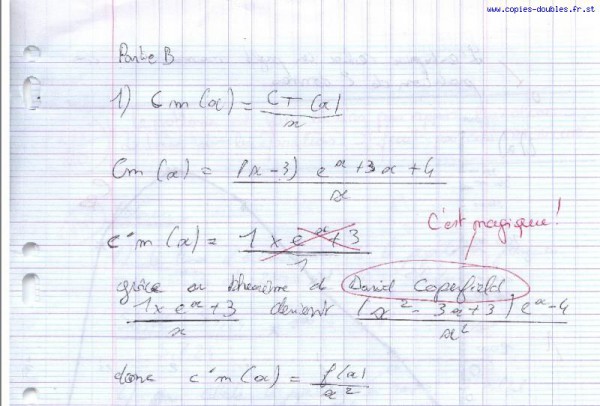 www.copies-doubles.fr.st
Partie B
1) Cm(x) = CT(x) / x
Cm(x) = (x-3) e^x + 3x + 4 / x
C'est magique!
c'm(x) = 1 x e^x + 3 / 1
grâce au théorème d David Coperfield,
1 x e^x + 3 / x devient (x² - 3x + 3) e^x - 4 / x²
donc c'm(x) = f(x) / x²